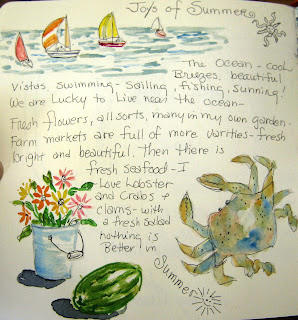 Joys of Summer
The Ocean - cool
Breezes, beautiful
Vistas, swimming - Sailing, fishing, sunning!
We are Lucky to Live near the ocean -
Fresh flowers, all sorts, many in my own garden -
Farm markets are full of more varities - fresh
bright and beautiful. Then there is
fresh seafood - I
Love Lobster
and Crabs +
clams - with
a fresh salad
nothing is
Better! in
Summer